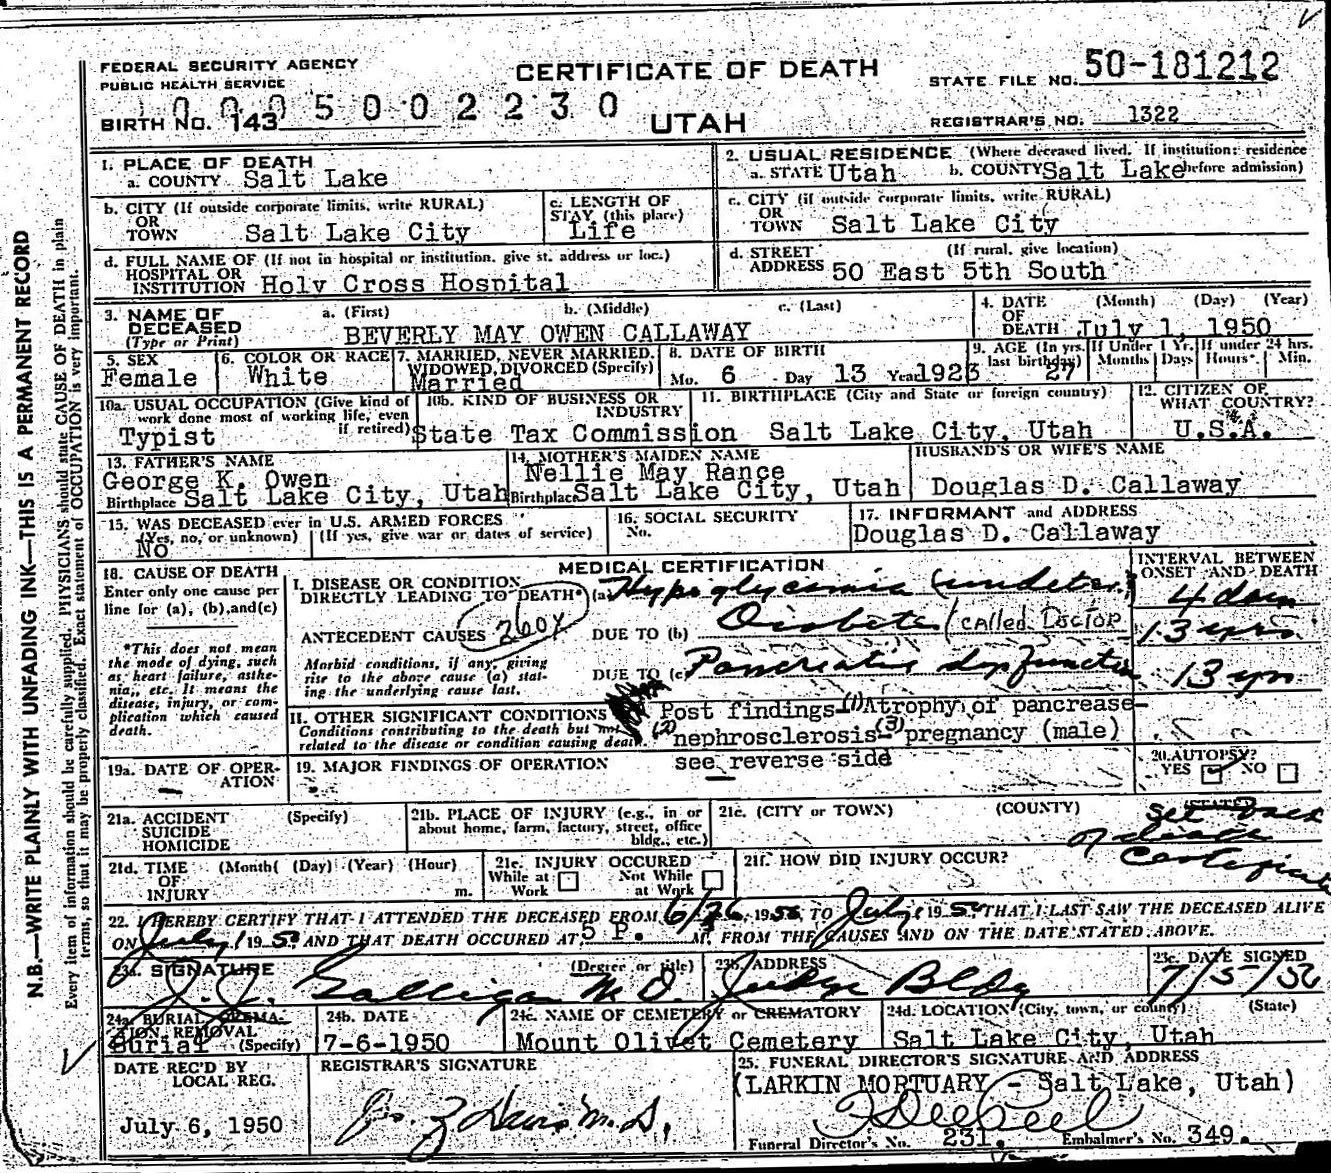 FEDERAL SECURITY AGENCY
PUBLIC HEALTH SERVICE
CERTIFICATE OF DEATH
STATE FILE NO. 50-181212
0005002230
BIRTH No. 143
UTAH
REGISTRAR'S NO. 1322
N.B.—WRITE PLAINLY WITH UNFADING INK—THIS IS A PERMANENT RECORD
Every item of information should be carefully supplied. PHYSICIANS should state CAUSE OF DEATH in plain
terms, so that it may be properly classified. Exact statement of OCCUPATION is very important.
1. PLACE OF DEATH
a. COUNTY Salt Lake
2. USUAL RESIDENCE (Where deceased lived. If institution: residence
a. STATE Utah b. COUNTY Salt Lake before admission)
b. CITY (If outside corporate limits, write RURAL)
OR
TOWN Salt Lake City
c. LENGTH OF
STAY (this place)
Life
c. CITY (if outside corporate limits, write RURAL)
OR
TOWN Salt Lake City
d. FULL NAME OF (If not in hospital or institution, give st. address or loc.)
HOSPITAL OR
INSTITUTION Holy Cross Hospital
d. STREET (If rural, give location)
ADDRESS 50 East 5th South
3. NAME OF a. (First) b. (Middle) c. (Last)
DECEASED
(Type or Print) BEVERLY MAY OWEN CALLAWAY
4. DATE (Month) (Day) (Year)
OF
DEATH July 1, 1950
5. SEX
Female
6. COLOR OR RACE
White
7. MARRIED, NEVER MARRIED,
WIDOWED, DIVORCED (Specify)
Married
8. DATE OF BIRTH
Mo. 6 Day 13 Year 1923
9. AGE (In yrs.
last birthday) 27
If Under 1 Yr.
Months Days
If under 24 hrs.
Hours Min.
10a. USUAL OCCUPATION (Give kind of
work done most of working life, even
if retired)
Typist
10b. KIND OF BUSINESS OR
INDUSTRY
State Tax Commission
11. BIRTHPLACE (City and State or foreign country)
Salt Lake City, Utah
12. CITIZEN OF
WHAT COUNTRY?
U.S.A.
13. FATHER'S NAME
George K. Owen
Birthplace Salt Lake City, Utah
14. MOTHER'S MAIDEN NAME
Nellie May Rance
Birthplace Salt Lake City, Utah
HUSBAND'S OR WIFE'S NAME
Douglas D. Callaway
15. WAS DECEASED ever in U.S. ARMED FORCES
(Yes, no, or unknown) (If yes, give war or dates of service)
No
16. SOCIAL SECURITY
No.
17. INFORMANT and ADDRESS
Douglas D. Callaway
18. CAUSE OF DEATH
Enter only one cause per
line for (a), (b), and (c)
*This does not mean
the mode of dying, such
as heart failure, asthe-
nia, etc. It means the
disease, injury, or com-
plication which caused
death.
MEDICAL CERTIFICATION
INTERVAL BETWEEN
ONSET AND DEATH
I. DISEASE OR CONDITION
DIRECTLY LEADING TO DEATH* (a) Hypoglycemia
260X
ANTECEDENT CAUSES DUE TO (b) Diabetes (called Doctor 13 yrs
Morbid conditions, if any, giving
rise to the above cause (a) stat-
ing the underlying cause last.
DUE TO (c) Pancreatic dysfunction 13 yrs
II. OTHER SIGNIFICANT CONDITIONS
Conditions contributing to the death but not
related to the disease or condition causing death.
Post findings-(1) Atrophy of pancrease-
(2) nephrosclerosis-(3) pregnancy (male)
see reverse side
19a. DATE OF OPER-
ATION
19. MAJOR FINDINGS OF OPERATION
20. AUTOPSY?
YES NO
21a. ACCIDENT (Specify)
SUICIDE
HOMICIDE
21b. PLACE OF INJURY (e.g., in or
about home, farm, factory, street, office
bldg., etc.)
21c. (CITY OR TOWN) (COUNTY) (STATE)
See back
of death
Certificate
21d. TIME (Month) (Day) (Year) (Hour)
OF
INJURY m.
21e. INJURY OCCURED
While at Not While
Work at Work
21f. HOW DID INJURY OCCUR?
22. I HEREBY CERTIFY THAT I ATTENDED THE DECEASED FROM 6/26, 1950, TO July 1 1950, THAT I LAST SAW THE DECEASED ALIVE
ON July 1 1950 AND THAT DEATH OCCURED AT 5 P. M. FROM THE CAUSES AND ON THE DATE STATED ABOVE.
23a. SIGNATURE (Degree or title)
Galligan M.D.
23b. ADDRESS
Judge Bldg
23c. DATE SIGNED
7/5/50
24a. BURIAL, CREMA-
TION, REMOVAL
Burial (Specify)
24b. DATE
7-6-1950
24c. NAME OF CEMETERY or CREMATORY
Mount Olivet Cemetery
24d. LOCATION (City, town, or county) (State)
Salt Lake City, Utah
DATE REC'D BY
LOCAL REG.
July 6, 1950
REGISTRAR'S SIGNATURE
25. FUNERAL DIRECTOR'S SIGNATURE AND ADDRESS
(LARKIN MORTUARY - Salt Lake, Utah)
Funeral Director's No. 231. Embalmer's No. 349.